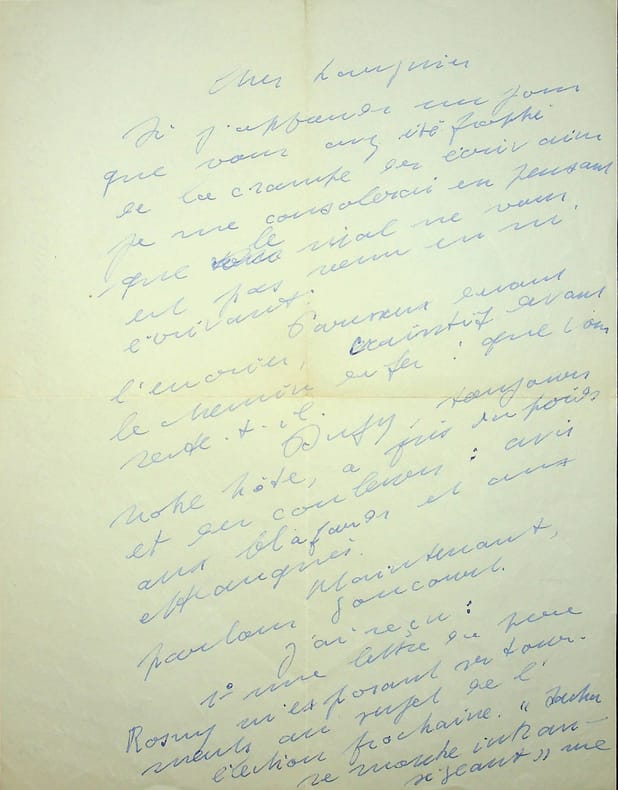 Cher Larguier
Si j'apprends un jour
que vous avez été frappé
de la crampe des écrivains
je me consolerai en pensant
que le mal ne vous
est pas venu en m'
écrivant.
Paresseux devant
l'encrier, craintif devant
le chemin de fer ! que vous
reste-t-il.
Dufy, toujours
notre hôte, a pris du poids
et des couleurs : avis
aux blafards et aux
efflanqués.
Maintenant,
parlons Goncourt.
J'ai reçu :
1º une lettre du père
Rosny m'exposant ses tour-
ments au sujet de l'
élection prochaine. "Sacha
se montre intran-
sigeant" me